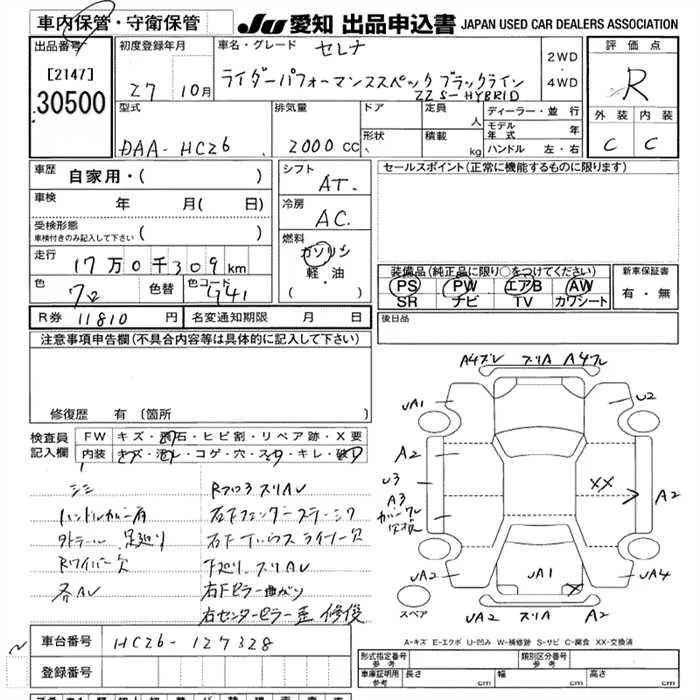 車内保管・守衛保管
JU 愛知 出品申込書 JAPAN USED CAR DEALERS ASSOCIATION
出品番号
[2147]
30500
初度登録年月
27 10月
車名・グレード セレナ
ライダーパフォーマンススペック ブラックライン
ZZ S-HYBRID
2WD
・
4WD
評価点
R
外装 内装
C C
型式
DAA-HC26
排気量
2000 cc
ドア
形状
定員
人
積載
kg
ディーラー・並行
モデル年式 年
ハンドル 左・右
車歴 自家用・( )
車検 年 月( 日)
受検形態
車検付きのみ記入して下さい ( )
走行
17万0千309km
色 色替 色コード
R券 11810 円 名変通知期限 月 日
シフト
AT.
冷房
AC.
燃料
ガソリン
軽・油
( )
セールスポイント(正常に機能するものに限ります)
装備品(純正品に限り○をつけてください)
PS PW エアB AW
SR ナビ TV カワシート
新車保証書
有・無
後日品
注意事項申告欄(不具合内容等は具体的に記入して下さい)
修復歴 有 (箇所 )
検査員
記入欄
FW キズ・飛石・ヒビ割・リペア跡・X要
内装 キズ・汚れ・コゲ・穴・スレ・キレ・破れ
シミ
ハンドルカバー有
外ドール 足廻り
Rワイパー欠
各AU
Rフロアスリ AU
右Fフェンダーステー
右Fインナーライナー欠
下廻り スリAU
右Fピラー曲がり
右センターピラー歪 修復
A4 スリA A4
UA1
U2
A2
U3
A3
XX
A2
UA2
UA1
X
UA4
UA2 スリA A2
スペア
A-キズ E-エクボ U-凹み W-補修跡 S-サビ C-腐食 XX-交換済
車台番号 HC26-127328
登録番号
形式指定番号
参考
類別区分番号
参考
車庫証明用
参考
長さ cm 幅 cm 高さ cm